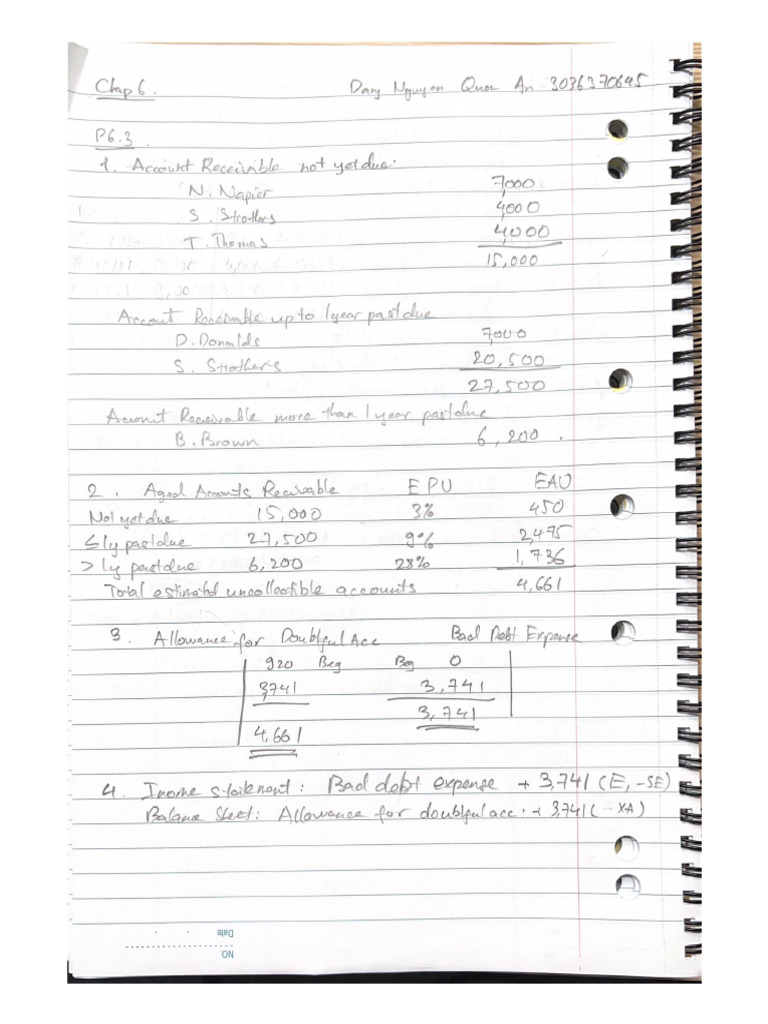 Chap 6. Dang Nguyen Quoc An 3036370645
P6.3
1. Account Receivable not yet due:
N. Napier 7000
S. Strothers 4000
T. Thomas 4000
15,000
Account Receivable up to 1 year past due
D. Donalds 7000
S. Strothers 20,500
27,500
Account Receivable more than 1 year past due
B. Brown 6,200.
2. Aged Accounts Receivable EPU EAU
Not yet due 15,000 3% 450
≤ 1y past due 27,500 9% 2,475
> 1y past due 6,200 28% 1,736
Total estimated uncollectible accounts 4,661
3. Allowance for Doubtful Acc Bad Debt Expense
920 Beg Beg 0
3,741 3,741
3,741
4,661
4. Income statement: Bad debt expense + 3,741 (E, -SE)
Balance Sheet: Allowance for doubtful acc. + 3,741 (-XA)
Date
NO.